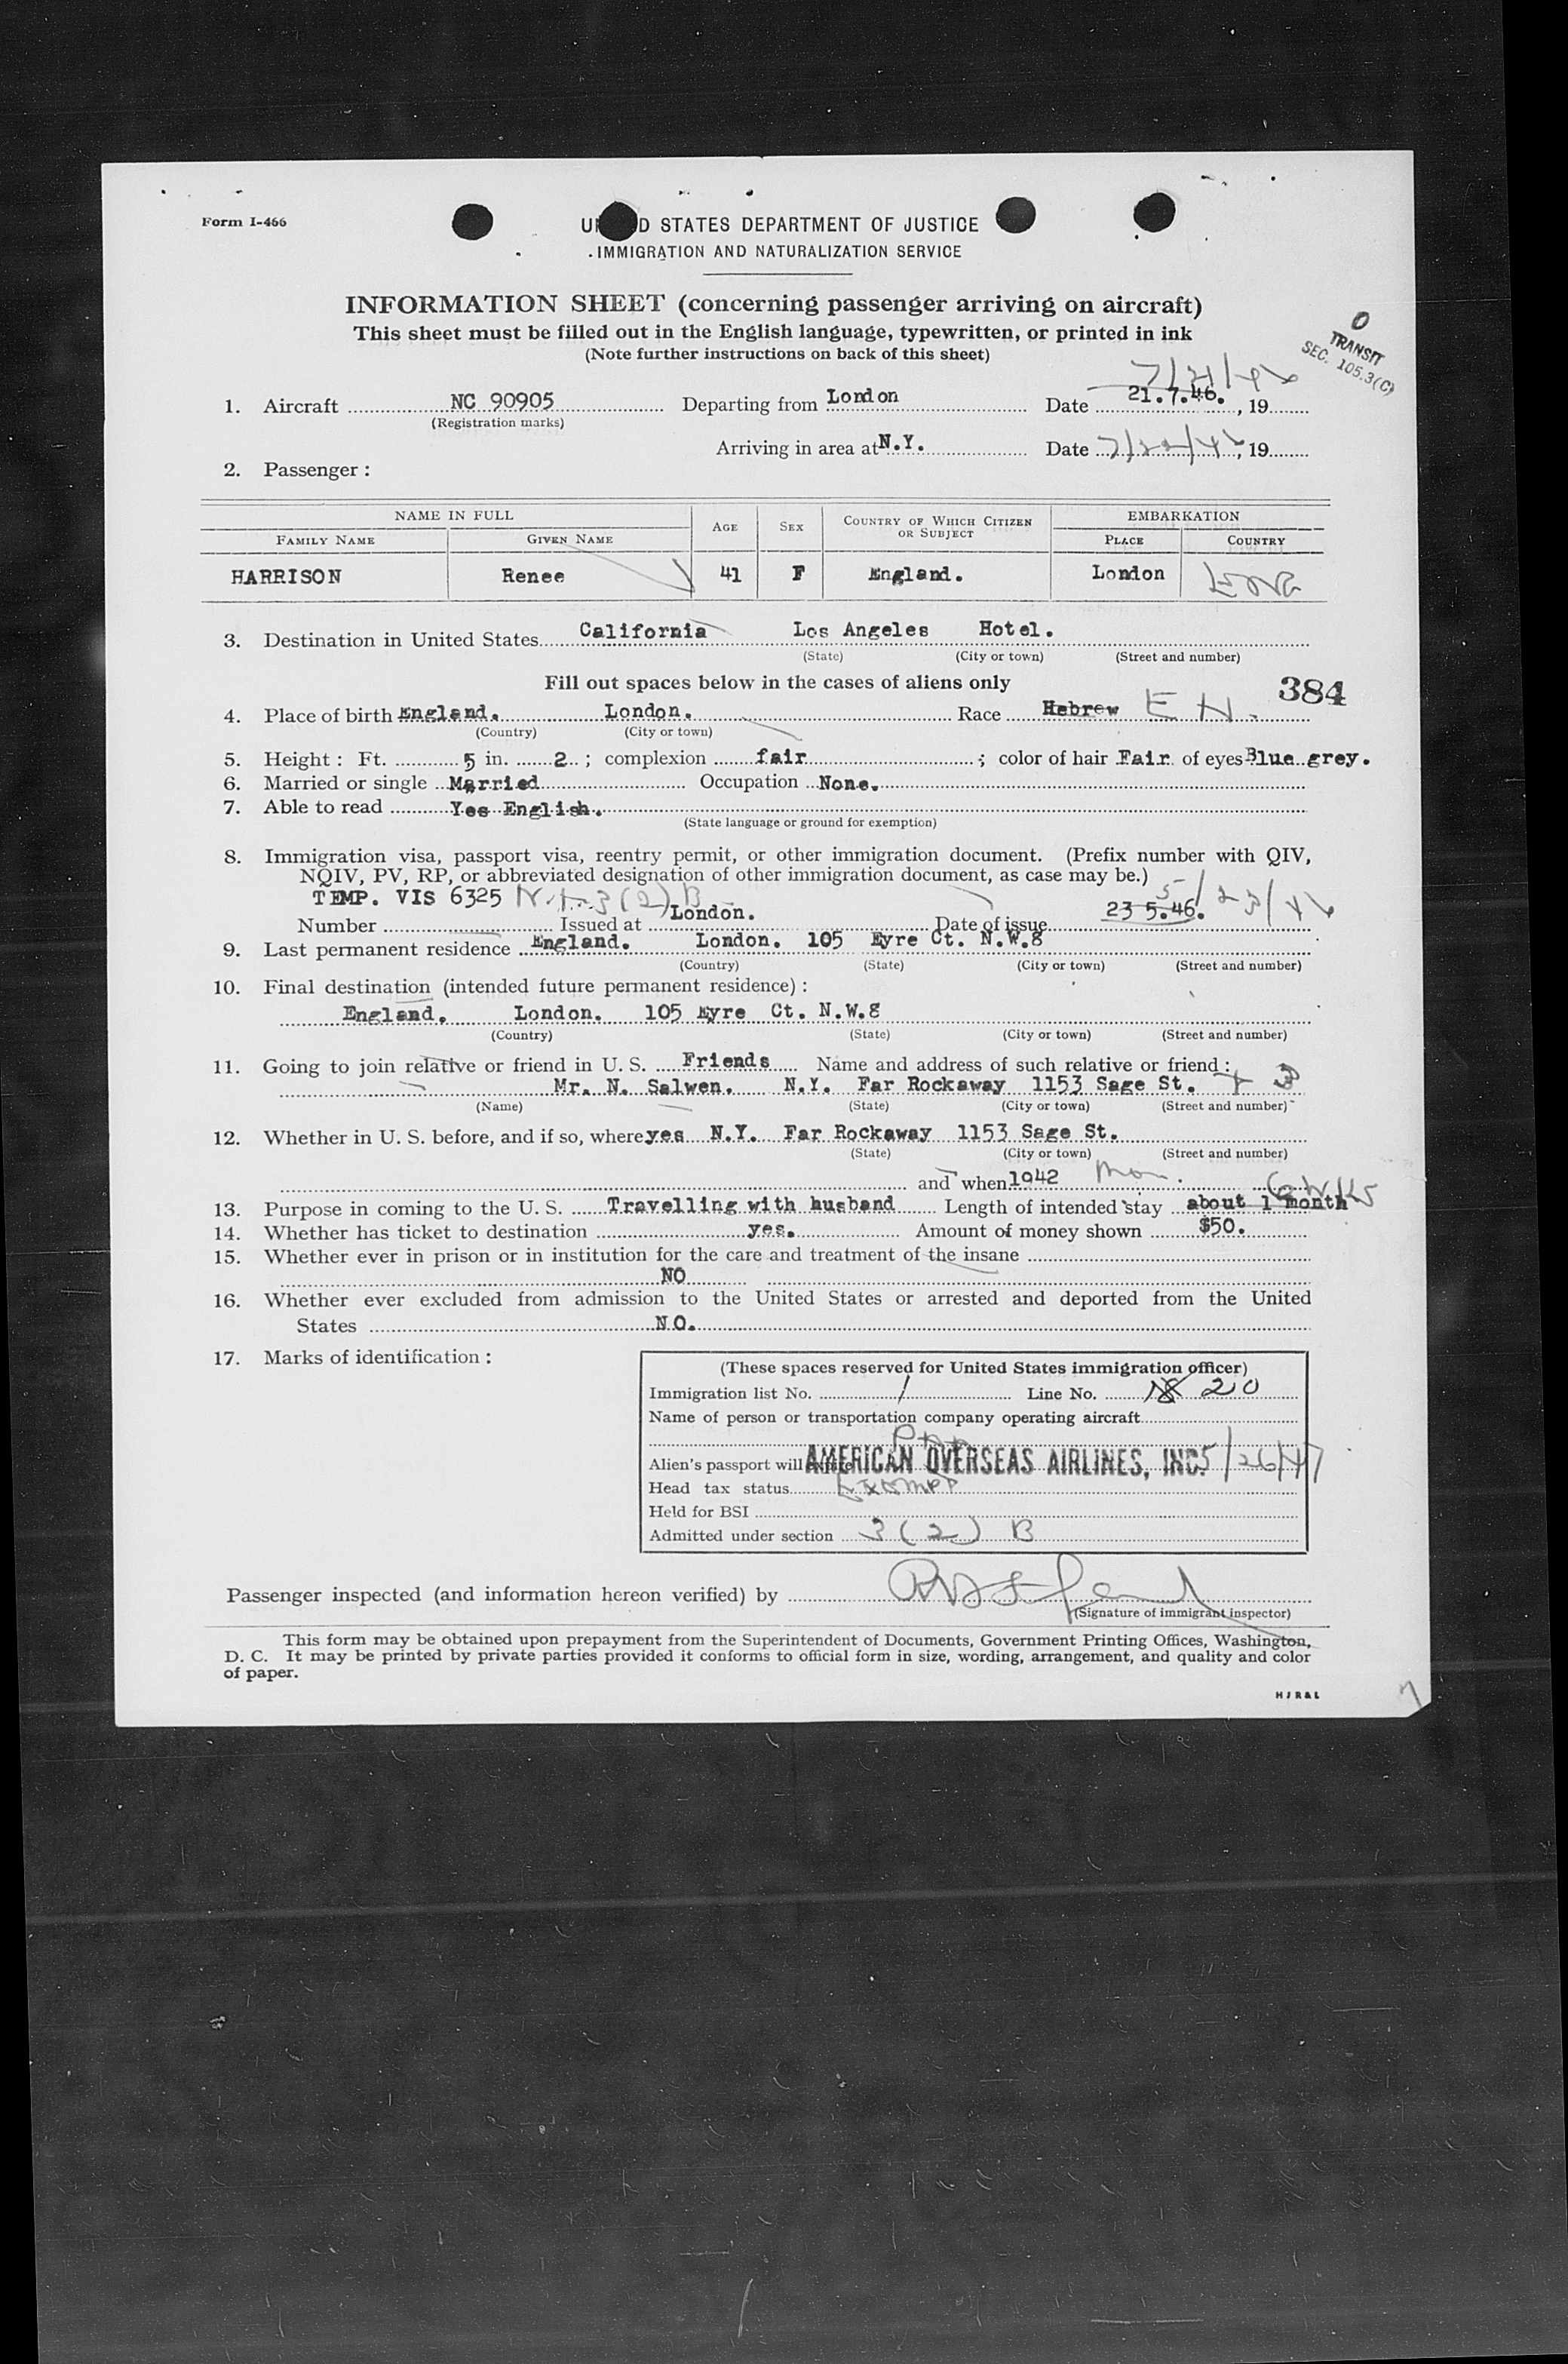 Form I-466
STATES DEPARTMENT OF JUSTICE
IMMIGRATION AND NATURALIZATION SERVICE
INFORMATION SHEET (concerning passenger arriving on aircraft)
This sheet must be filled out in the English language, typewritten, or printed in ink
(Note further instructions on back of this sheet)
O
TRANSIT
SEC. 105.3(C)
7/21/46
1. Aircraft NC 90905 Departing from London Date 21.7.46. , 19
(Registration marks)
Arriving in area at N.Y. Date 7/22/46, 19
2. Passenger :
NAME IN FULL AGE SEX COUNTRY OF WHICH CITIZEN OR SUBJECT EMBARKATION
FAMILY NAME GIVEN NAME PLACE COUNTRY
HARRISON Renee 41 F England. London ENG
3. Destination in United States California Los Angeles Hotel.
(State) (City or town) (Street and number)
Fill out spaces below in the cases of aliens only
384
4. Place of birth England. London. Race Hebrew E N.
(Country) (City or town)
5. Height : Ft. 5 in. 2 ; complexion fair ; color of hair Fair of eyes Blue grey.
6. Married or single Married Occupation None.
7. Able to read Yes English.
(State language or ground for exemption)
8. Immigration visa, passport visa, reentry permit, or other immigration document. (Prefix number with QIV,
NQIV, PV, RP, or abbreviated designation of other immigration document, as case may be.)
TEMP. VIS 6325 3(2) B 5/23/46
Number Issued at London. Date of issue 23 5.46.
9. Last permanent residence England. London. 105 Eyre Ct. N.W.8
(Country) (State) (City or town) (Street and number)
10. Final destination (intended future permanent residence) :
England. London. 105 Eyre Ct. N.W.8
(Country) (State) (City or town) (Street and number)
11. Going to join relative or friend in U. S. Friends Name and address of such relative or friend :
Mr. N. Salwen. N.Y. Far Rockaway 1153 Sage St.
(Name) (State) (City or town) (Street and number)
12. Whether in U. S. before, and if so, where yes N.Y. Far Rockaway 1153 Sage St.
(State) (City or town) (Street and number)
and when 1942
13. Purpose in coming to the U. S. Travelling with husband Length of intended stay about 1 month
14. Whether has ticket to destination yes. Amount of money shown $50.
15. Whether ever in prison or in institution for the care and treatment of the insane
NO
16. Whether ever excluded from admission to the United States or arrested and deported from the United
States NO.
17. Marks of identification :
(These spaces reserved for United States immigration officer)
Immigration list No. 1 Line No. 18 20
Name of person or transportation company operating aircraft
Alien's passport will AMERICAN OVERSEAS AIRLINES, INC. 5/26/47
Head tax status Exempt
Held for BSI
Admitted under section 3 (2) B
Passenger inspected (and information hereon verified) by
(Signature of immigrant inspector)
This form may be obtained upon prepayment from the Superintendent of Documents, Government Printing Offices, Washington,
D. C. It may be printed by private parties provided it conforms to official form in size, wording, arrangement, and quality and color
of paper.
HJR&L